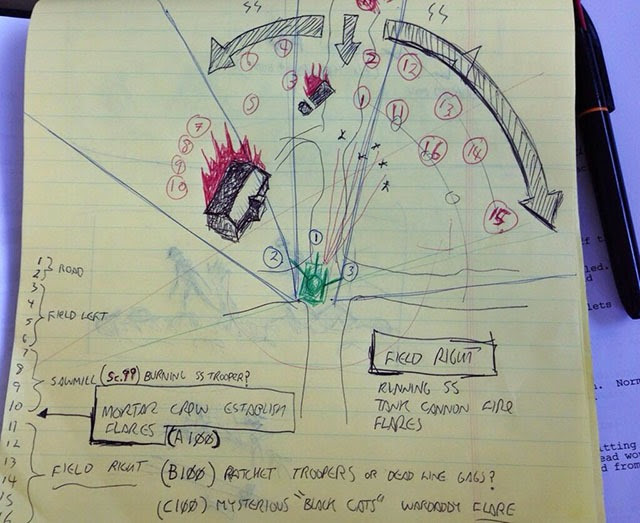 SS SS
6 4 2 12
3
5 1 11 13
7
8 16 14
9
10 15
1
2 3
1 } ROAD
2
3
4 } FIELD LEFT
5
6
7
8 } SAWMILL (SC.99) BURNING SS TROOPER?
9
10 MORTAR CREW ESTABLISH
FLARES (A100)
11
12
13 } FIELD RIGHT (B100) RATCHET TROOPERS OR DEAD WIRE GAGS?
14
15 (C100) MYSTERIOUS "BLACK CATS" WARDADDY FLARE
16
FIELD RIGHT
RUNNING SS
TANK CANNON FIRE
FLARES
led.
lets
Norm
itting
ead wo
d from